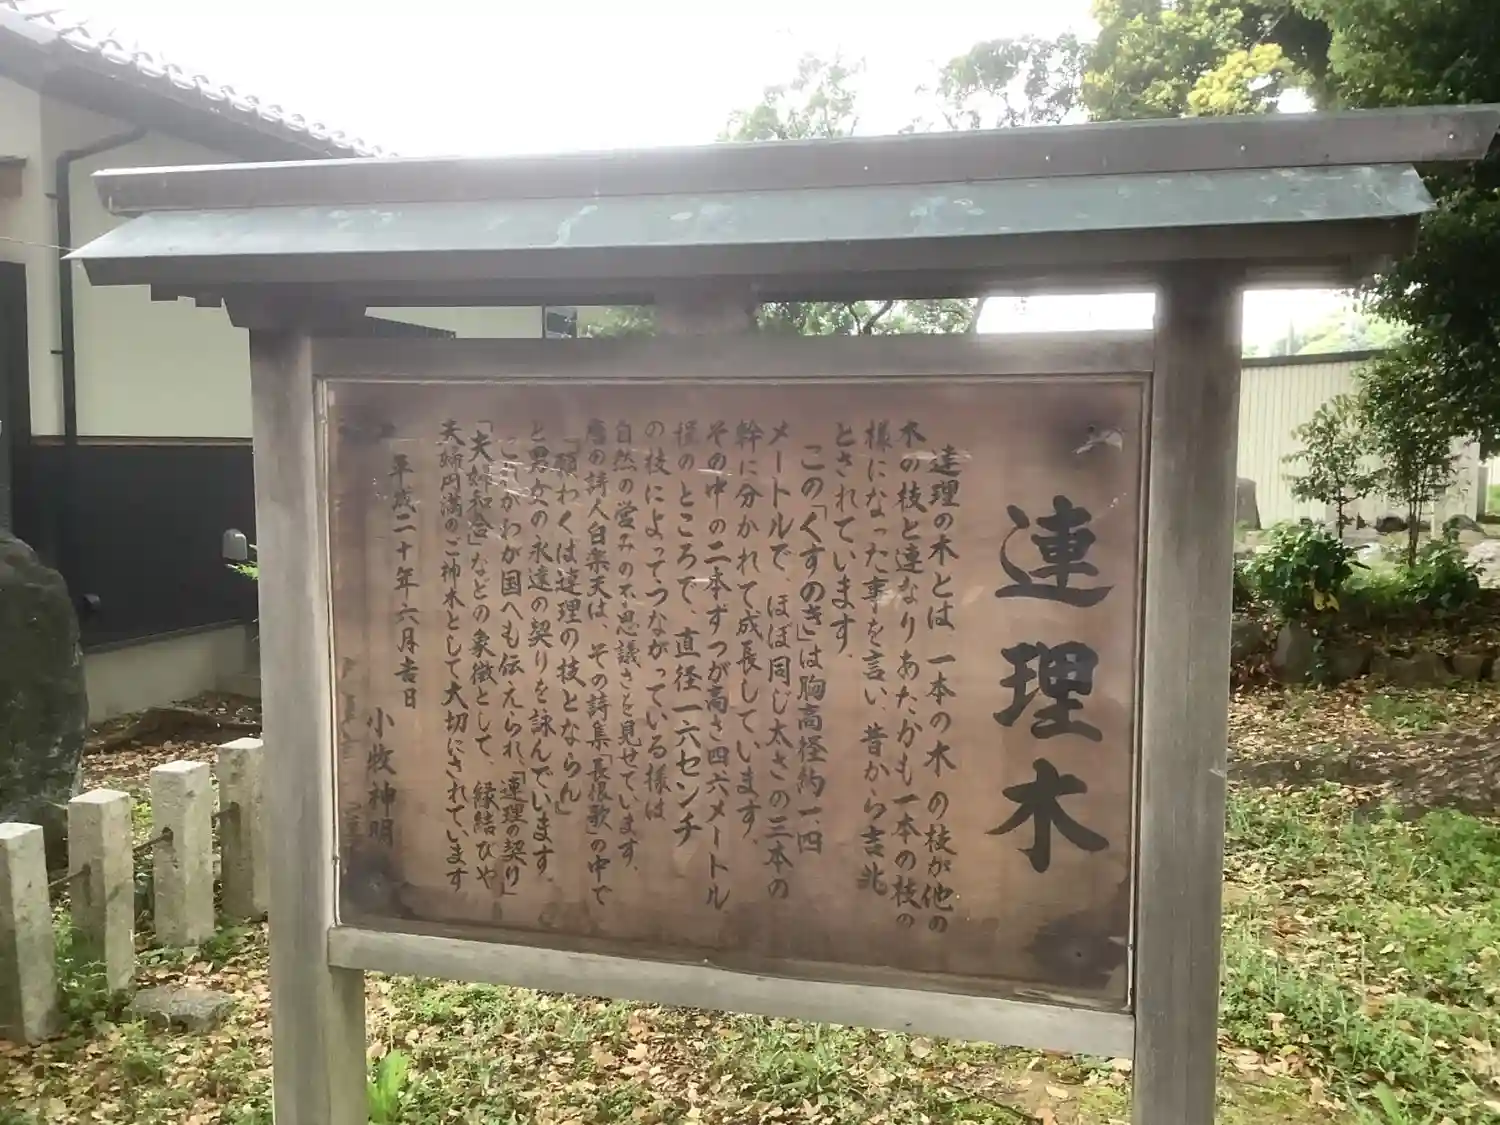 連理木
連理の木とは、一本の木の枝が他の
木の枝と連なりあたかも一本の枝の
様になった事を言い、昔から吉兆
とされています。
この「くすのき」は胸高径約一.四
メートルで、ほぼ同じ太さの三本の
幹に分かれて成長しています。
その中の二本ずつが高さ四.六メートル
様のところで、直径一六センチ
の枝によってつながっている様は
自然の営みの不思議さを見せています。
唐の詩人白楽天は、その詩集「長恨歌」の中で
「願わくは連理の枝とならん」
と男女の永遠の契りを詠んでいます。
これがわが国へも伝えられ、「連理の契り」
「夫婦和合」などの象徴として、縁結びや
夫婦円満のご神木として大切にされています
平成二十年六月吉日
小牧神明